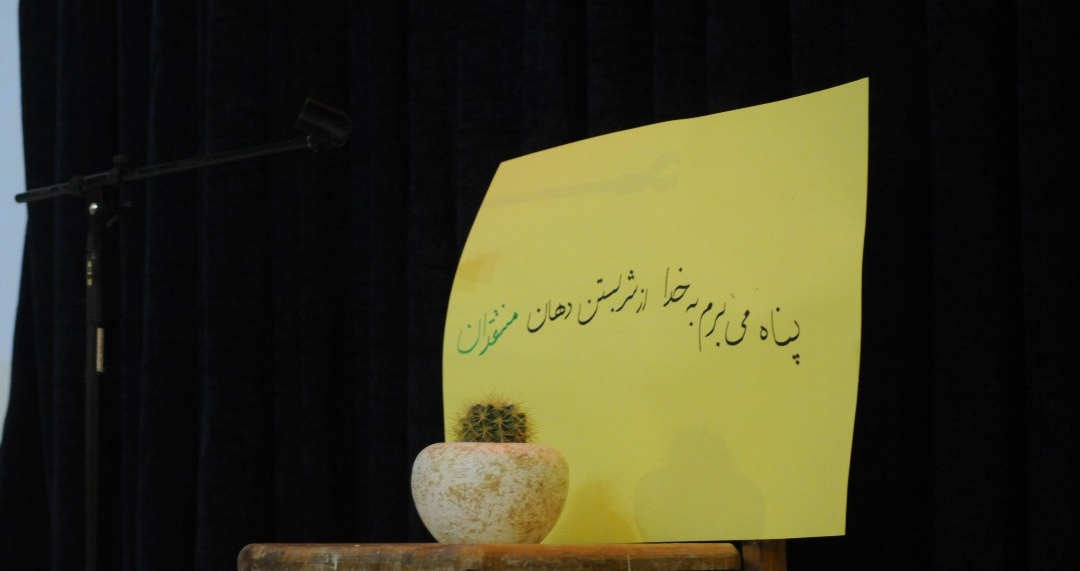 پناه می برم به خدا از شر بستن دهان منتقدان